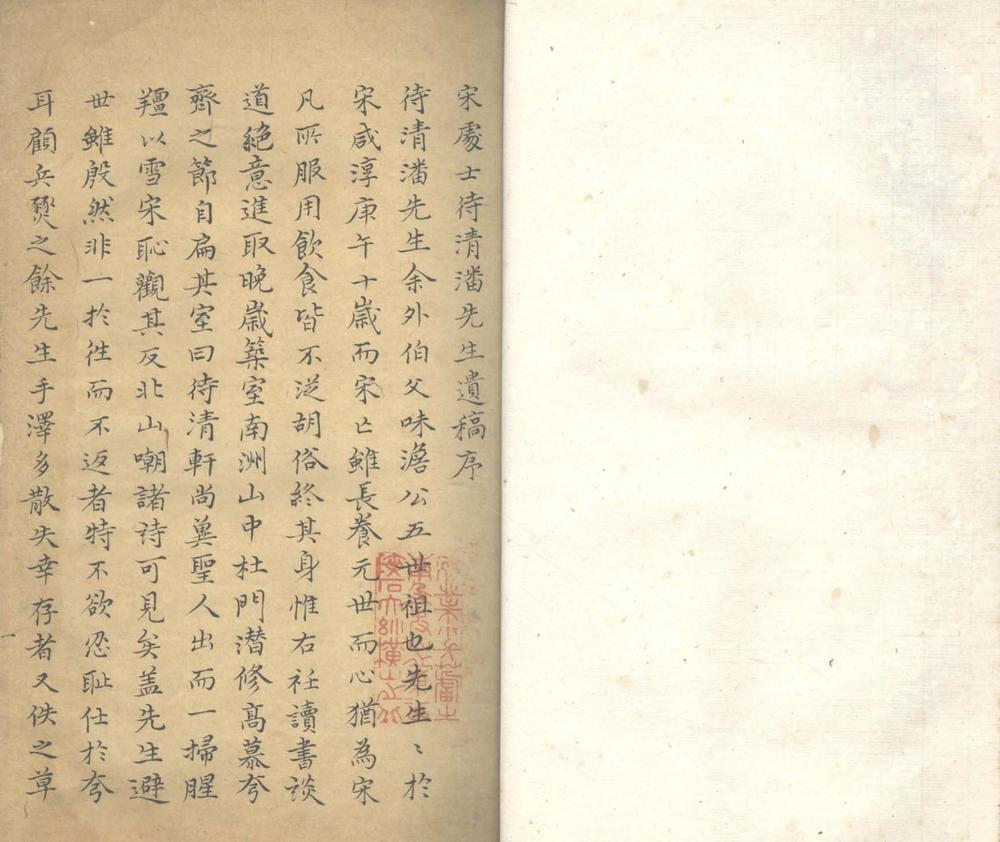 宋處士待清潘先生遺稿序
待清潘先生余外伯父味澹公五世祖也先生〻於
宋咸淳庚午十歲而宋亡雖長養元世而心猶為宋
凡所服用飲食皆不从胡俗終其身惟右衽讀書談
道絕意進取晚歲築室南洲山中杜門潛修高慕夸
齊之節自扁其室曰待清軒尚冀聖人出而一掃腥
羶以雪宋恥觀其反北山嘲諸诗可見矣盖先生避
世雖殷然非一於徃而不返者特不欲忍耻仕於夸
耳顧兵燹之餘先生手澤多散失幸存者又佚之草
一